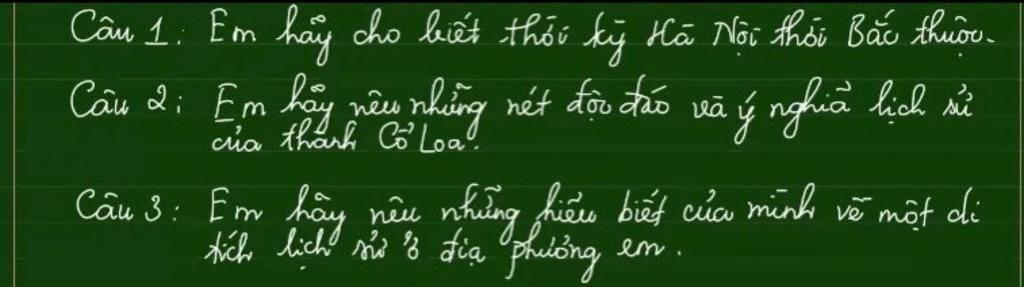 Câu 1: Em hãy cho biết thời kỳ Hà Nội thời Bắc thuộc.
Câu 2: Em hãy nêu những nét độc đáo và ý nghĩa lịch sử
của thành Cổ Loa.
Câu 3: Em hãy nêu những hiểu biết của mình về một di
tích lịch sử ở địa phương em.